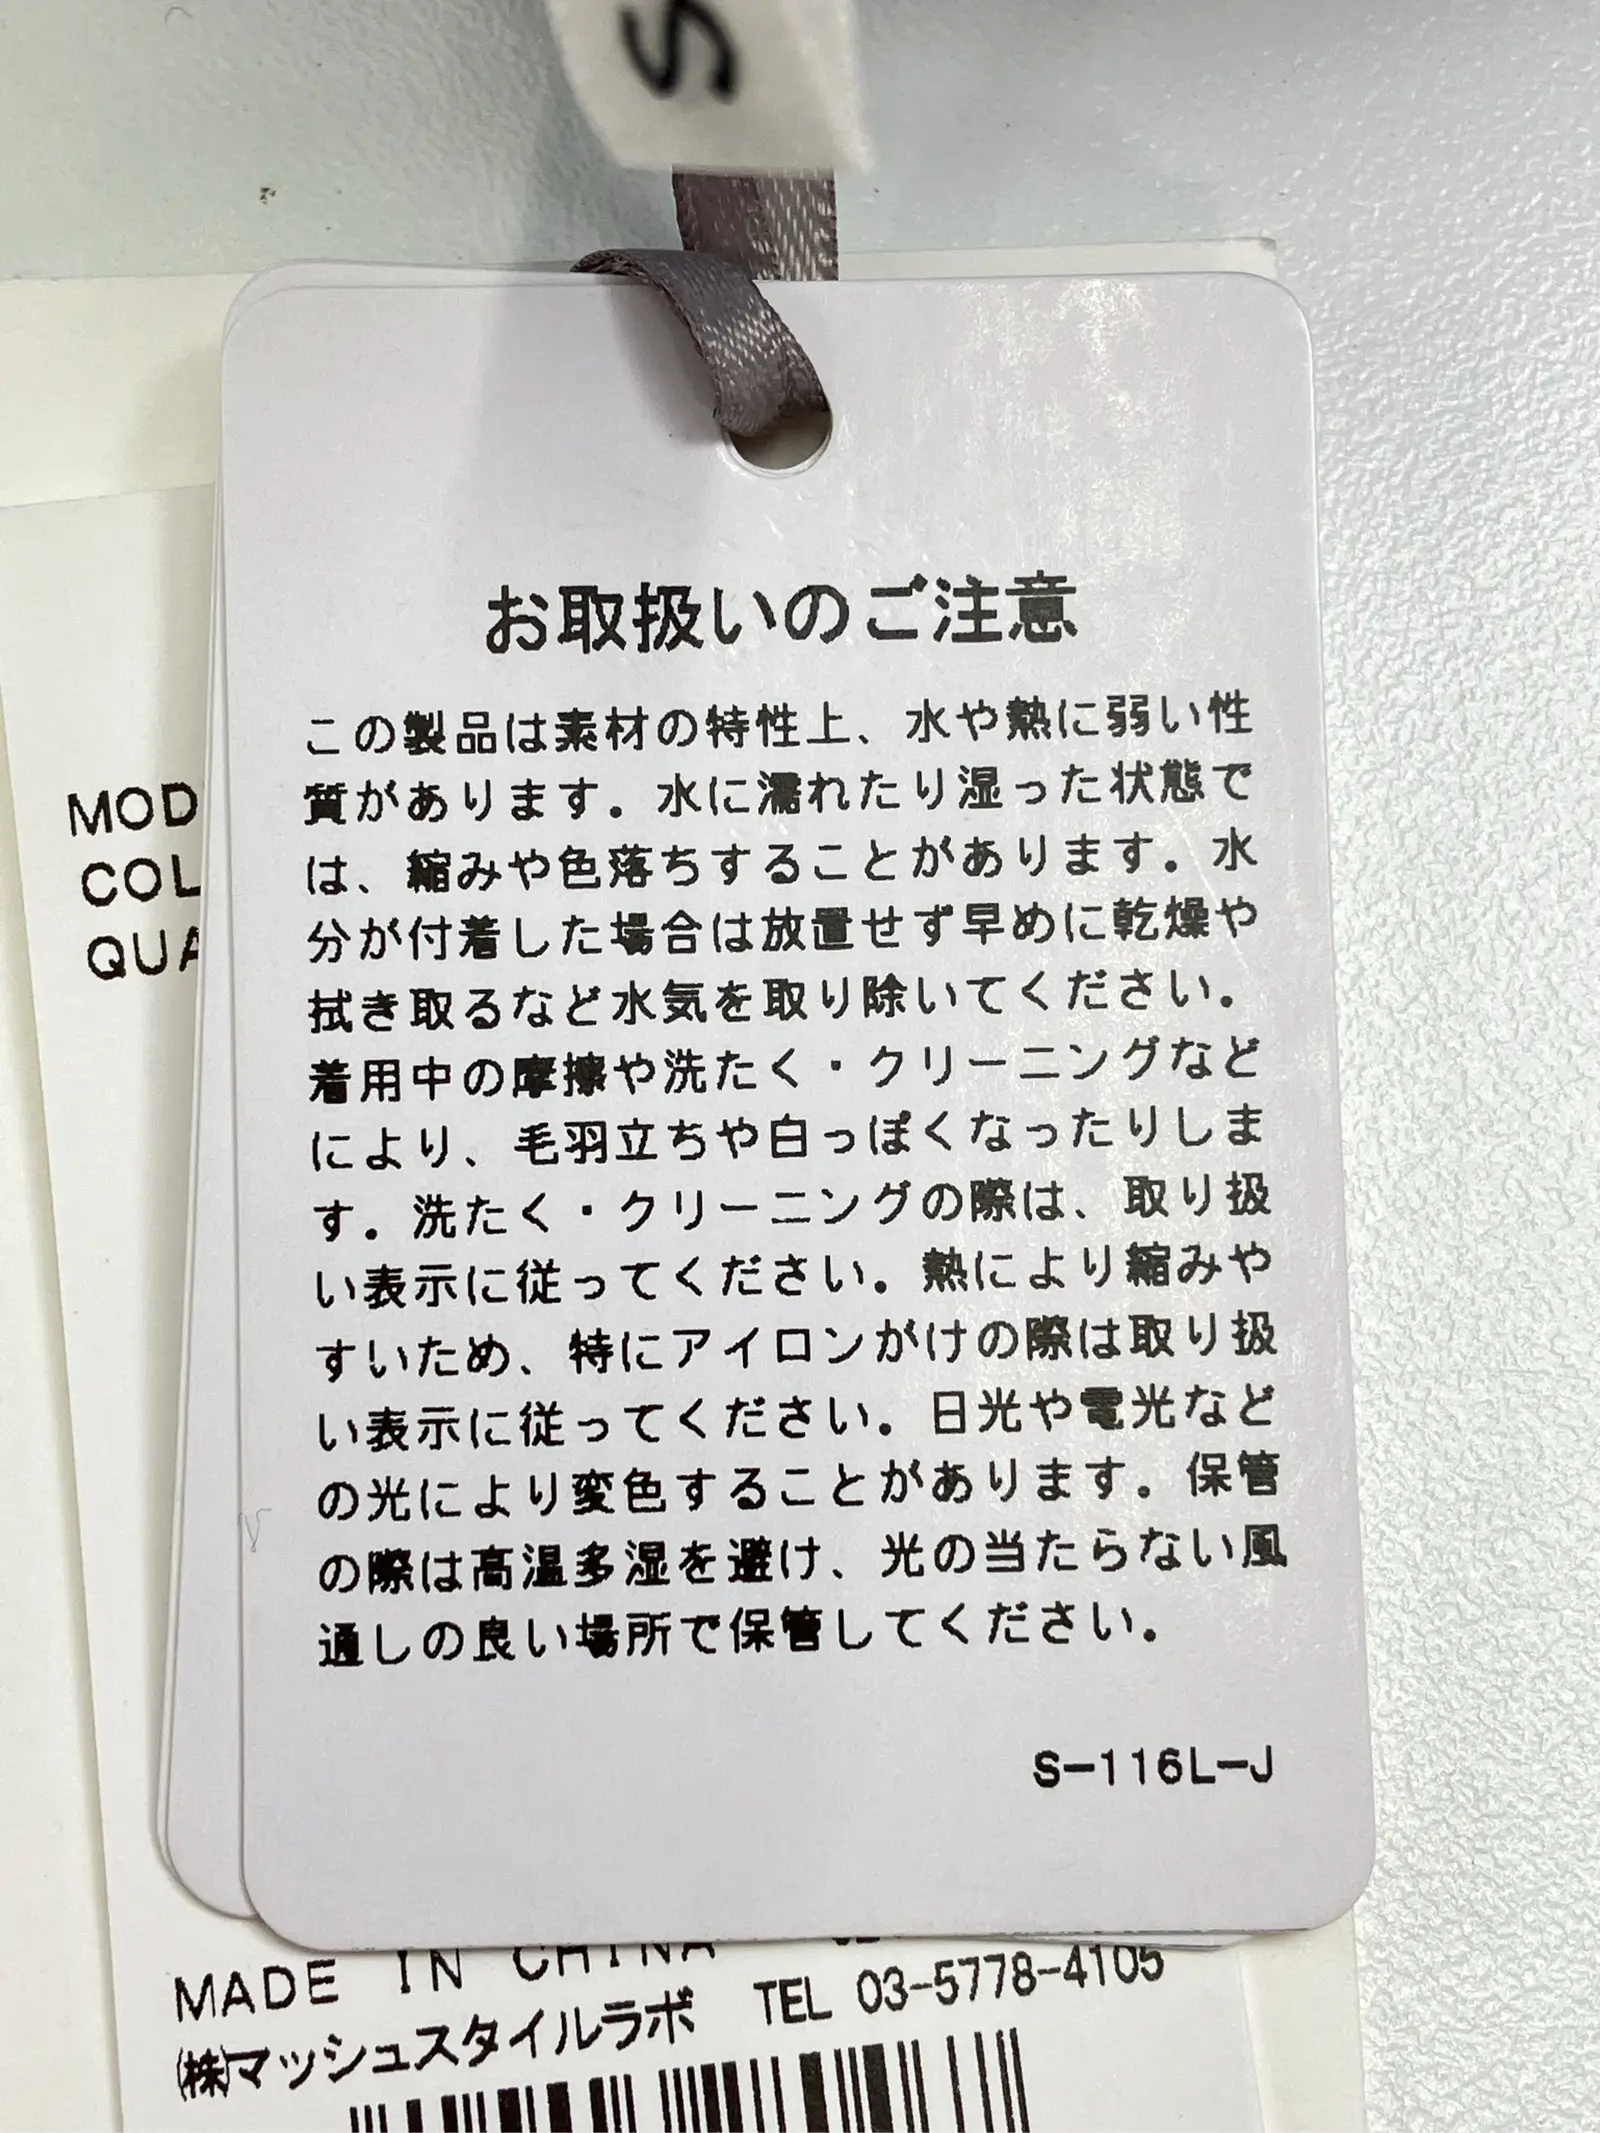 S
お取扱いのご注意
この製品は素材の特性上、水や熱に弱い性
質があります。水に濡れたり湿った状態で
は、縮みや色落ちすることがあります。水
分が付着した場合は放置せず早めに乾燥や
拭き取るなど水気を取り除いてください。
着用中の摩擦や洗たく・クリーニングなど
により、毛羽立ちや白っぽくなったりしま
す。洗たく・クリーニングの際は、取り扱
い表示に従ってください。熱により縮みや
すいため、特にアイロンがけの際は取り扱
い表示に従ってください。日光や電光など
の光により変色することがあります。保管
の際は高温多湿を避け、光の当たらない風
通しの良い場所で保管してください。
S-116L-J
MOD
COL
QUA
MADE IN CHINA
㈱マッシュスタイルラボ TEL 03-5778-4105